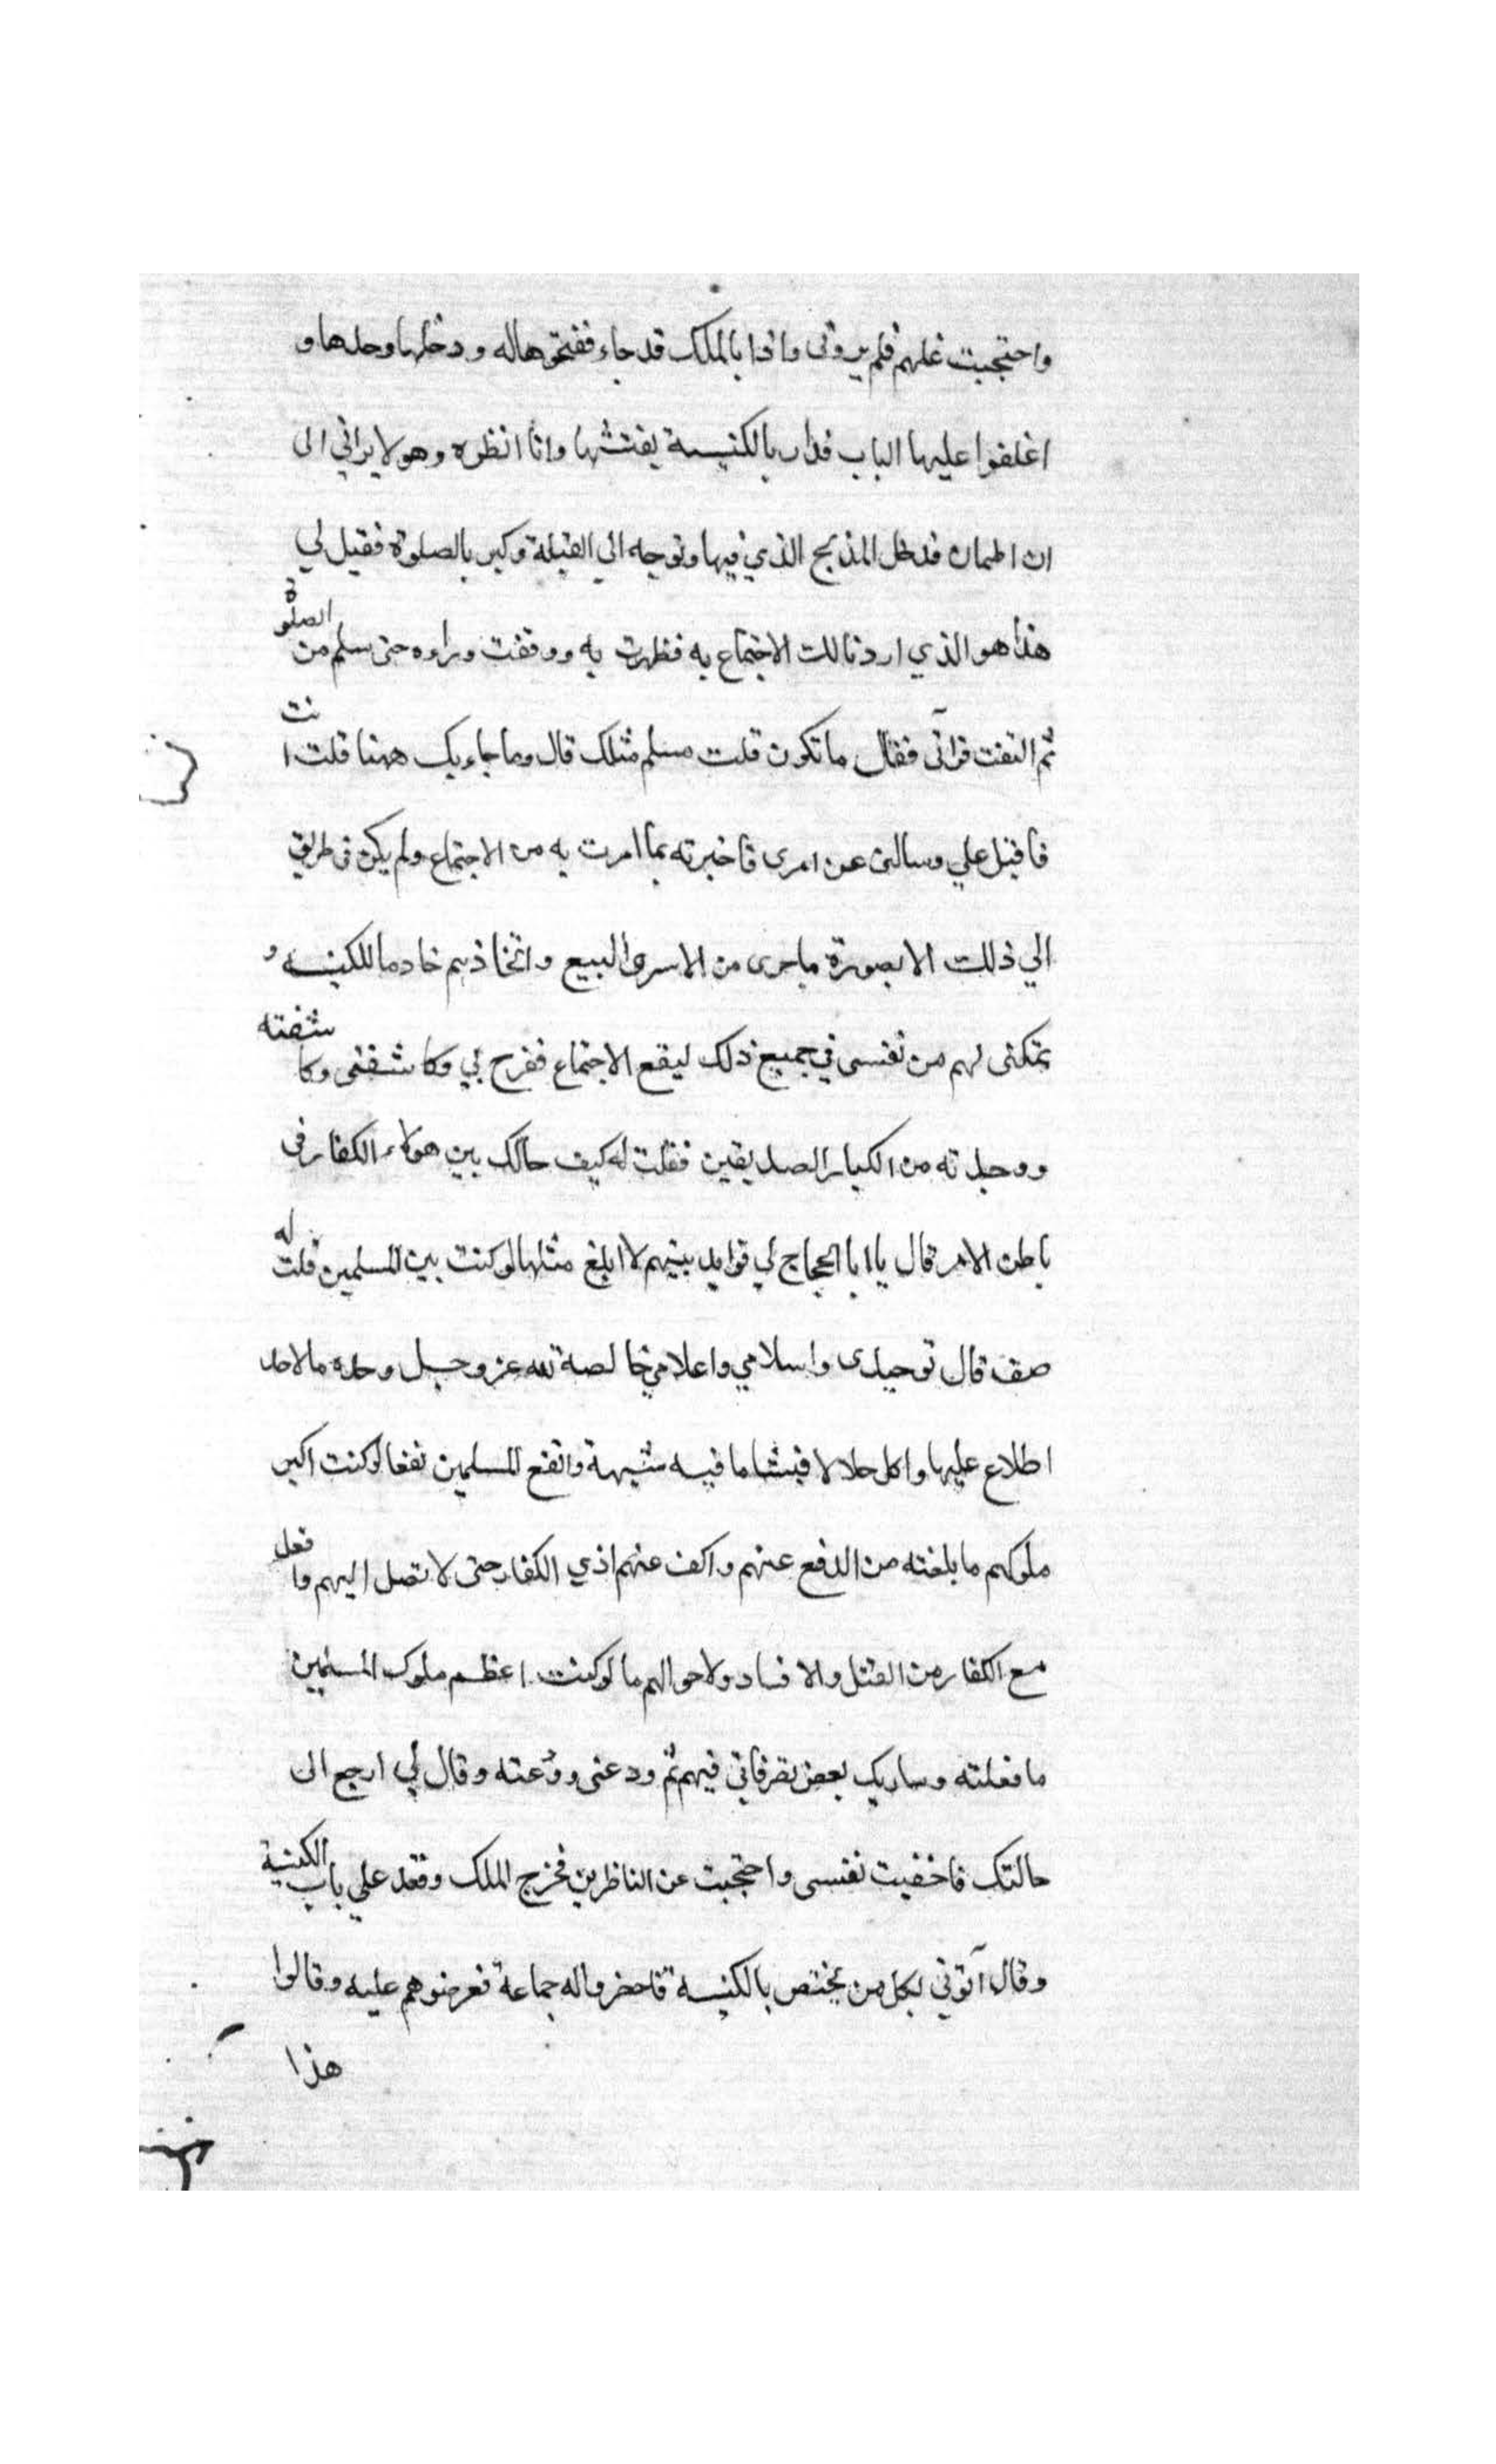 واحتجبت عنهم فلم يروني واذا بالملك قد جاء ففتحوها له ودخلها وحدها و
اغلقوا عليها الباب فدار بالكنيسة يفتشها وانا انظره وهو لا يراني الى
ان اطمان فدخل المذبح الذي فيها وتوجه الي القبلة وكبر بالصلوة فقيل لي
هذا هو الذي اردنا لك الاجتماع به فظهرت به ووقفت وراءه حتى سلم من الصلوة
ثم التفت فرآني فقال ما تكون قلت مسلم مثلك قال وما جاء بك ههنا قلت انت
فاقبل علي وسالني عن امرى فاخبرته بما امرت به من الاجتماع ولم يكن في طريق
الي ذلك الا بصورة ما جرى من الاسر والبيع واتخاذهم خادما للكنيسه و
تمكنى لهم من نفسى في جميع ذلك ليقع الاجتماع ففرح بي وكاشفنى وكاشفته
ووجدته من الكبار الصديقين فقلت له كيف حالك بين هولاء الكفار في
باطن الامر قال يا ابا الحجاج لي فوايد بينهم لا ابلغ مثلها لو كنت بين المسلمين قلت له
صف قال توحيدى واسلامي واعلامي خالصة لله عز وجل وحده ما لاحد
اطلاع عليها واكل حلالا فيشا ما فيه شبهة وانفع المسلمين نفعا لو كنت اكبر
ملوكهم ما بلغته من الدفع عنهم واكف عنهم اذي الكفار حتى لا تصل اليهم وافعل
مع الكفار من القتل والافساد ولاحوالهم ما لو كنت اعظم ملوك المسلمين
ما فعلته وساريك بعض تصرفاتي فيهم ثم ودعنى وودعته وقال لي ارجع الى
حالتك فاخفيت نفسى واحتجبت عن الناظرين فخرج الملك وقعد علي باب الكنيسة
وقال آتوني بكل من يختص بالكنيسة فاحضروا له جماعة فعرضوهم عليه وقالوا
هذا